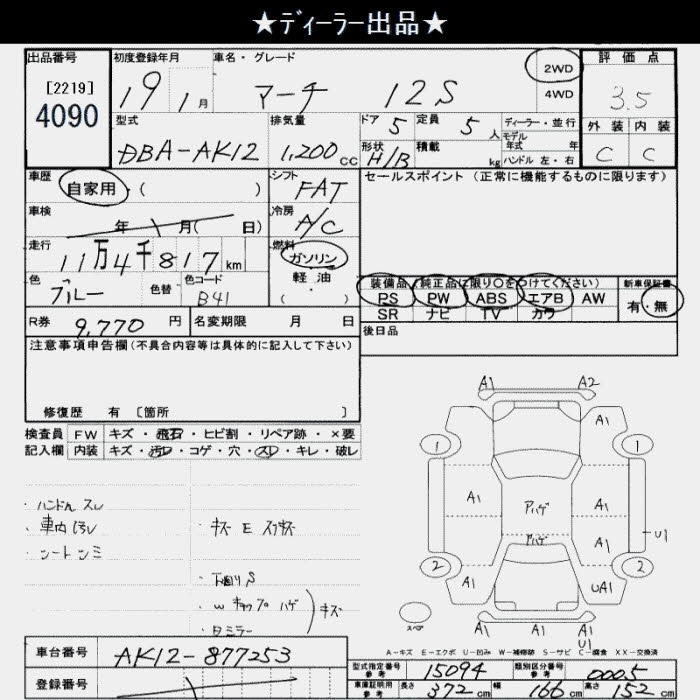 ★ディーラー出品★
出品番号 初度登録年月 車名・グレード 2WD 評価点
[2219] 4090 19 1月 マーチ 12S 4WD 3.5
型式 排気量 ドア 5 定員 5人 ディーラー・並行 外装 内装
DBA-AK12 1,200cc 形状 H/B 積載 kg モデル年式 年 C C
ハンドル 左・右
車歴 自家用・( ) シフト FAT セールスポイント (正常に機能するものに限ります)
車検 年 月( 日) 冷房 A/C
走行 11万4千817km 燃料 ガソリン 軽油・( )
色 ブルー 色替 色コード B41
装備品(純正品に限り○をつけてください) 新車保証書
PS PW ABS エアB AW 有・無
SR ナビ TV カワ
R券 9,770円 名変期限 月 日 後日品
注意事項申告欄(不具合内容等は具体的に記入して下さい)
修復歴 有 [箇所 ]
検査員 FW キズ・飛石・ヒビ割・リペア跡・×要
記入欄 内装 キズ・汚レ・コゲ・穴・スレ・キレ・破レ
A1 A2
A1
1 1
A1 アハゲ A1
アハゲ A1 U1
2 2
A1 UA1
A1 A1 A1
U1
スペア
・ハンドルスレ
・車内汚レ
・シートシミ
・キズ E スリキズ
・下廻りS
・Wキャップハゲ
・Dミラー キズ
A-キズ E-エクボ U-凹み W-補修跡 S-サビ C-腐食 XX-交換済
車台番号 AK12-877253
登録番号
型式指定番号 参考 15094 類別区分番号 参考 0005
車庫証明用 参考 長さ 372cm 幅 166cm 高さ 152cm